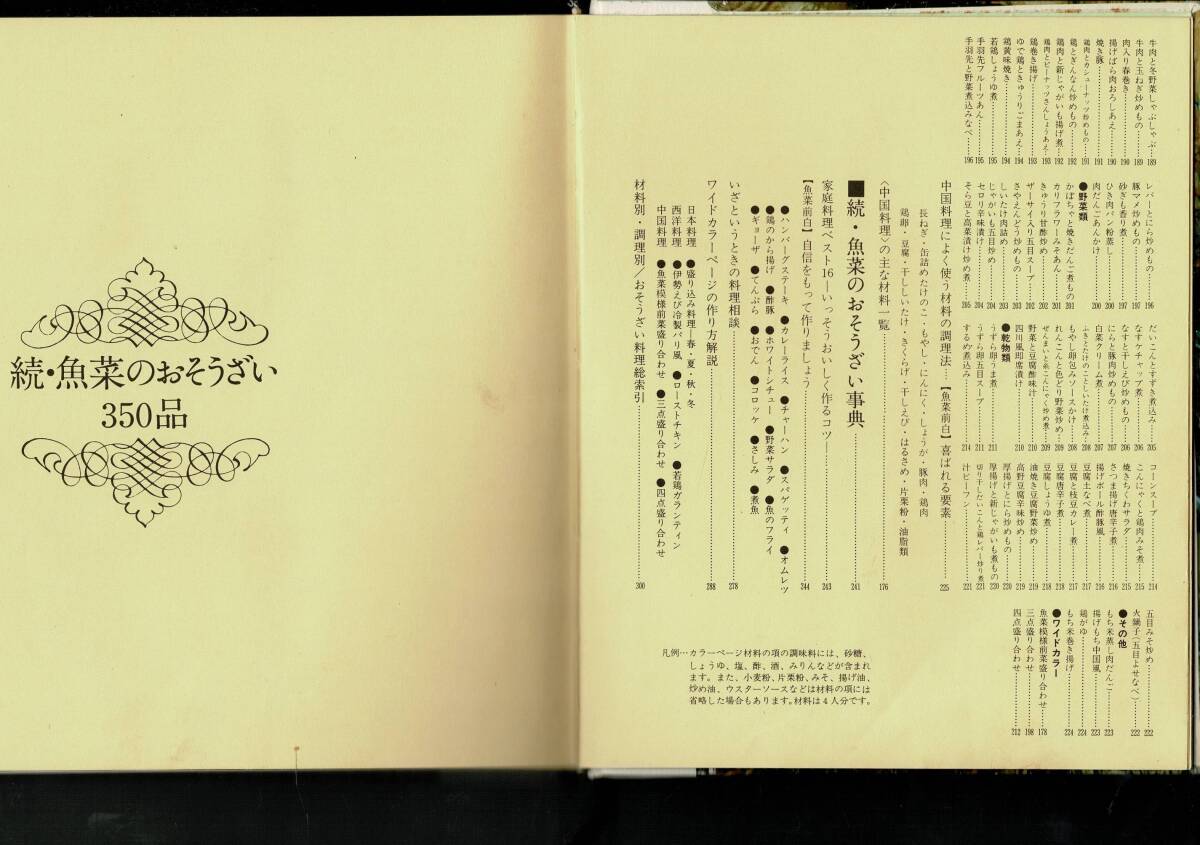 牛肉と冬野菜しゃぶしゃぶ……189
牛肉と玉ねぎ炒めもの……189
肉入り春巻き……190
揚げばら肉おろしあえ……190
焼き豚……191
鶏肉とカシューナッツ炒めもの……191
鶏とぎんなん炒めもの……192
鶏肉と新じゃがいも揚げ煮……192
鶏肉とピーナッツさんしょうあえ……193
鶏巻き揚げ……193
ゆで鶏ときゅうりごまあえ……194
鶏黄味焼き……194
若鶏しょうゆ煮……195
手羽先フルーツあん……195
手羽先と野菜煮込みなべ……196
レバーとにら炒めもの……196
豚マメ炒めもの……197
砂ぎも香り煮……197
ひき肉パン粉蒸し……199
肉だんごあんかけ……200
●野菜類
かぼちゃと焼きだんご煮もの……201
カリフラワーみそあん……201
きゅうり甘酢炒め……202
ザーサイ入り五目スープ……202
さやえんどう炒めもの……203
しいたけ肉詰め……203
じゃがいも五目炒め……203
セロリ辛味漬け……204
そら豆と高菜漬け炒め煮……205
だいこんとすずき煮込み……205
なすケチャップ煮……206
なすと干しえび炒めもの……206
にらと豚肉炒めもの……207
白菜クリーム煮……207
ふきとたけのことしいたけ煮込み……208
もやし卵包みソースかけ……208
れんこんと色どり野菜炒め……209
ぜんまいと糸こんにゃく炒め煮……209
野菜と豆腐酢味汁……210
四川風即席漬け……210
●乾物類
うずら卵うま煮……211
うずら卵五目スープ……211
するめ煮込み……214
コーンスープ……214
こんにゃくと鶏肉みそ煮……215
焼きちくわサラダ……215
さつま揚げ唐辛子煮……216
揚げボール酢豚風……216
豆腐土なべ煮……217
豆腐と枝豆カレー煮……217
豆腐唐辛子煮……218
豆腐しょうゆ煮……218
油焼き豆腐野菜炒め……219
高野豆腐辛味炒め……219
厚揚げとにら炒めもの……220
厚揚げと新じゃがいも煮もの……220
切り干しだいこんと鶏レバー炒り煮……221
汁ビーフン……221
五目みそ炒め……222
火鍋子(五目よせなべ)……222
●その他
もち米蒸し肉だんご……223
揚げもち中国風……223
鶏がゆ……224
もち米巻き揚げ……224
●ワイドカラー
魚菜模様前菜盛り合わせ……178
三点盛り合わせ……198
四点盛り合わせ……212
中国料理によく使う材料の調理法…【魚菜前白】喜ばれる要素……225
長ねぎ・缶詰めたけのこ・もやし・にんにく・しょうが・豚肉・鶏肉
鶏卵・豆腐・干ししいたけ・きくらげ・干しえび・はるさめ・片栗粉・油脂類
〈中国料理〉の主な材料一覧……176
■続・魚菜のおそうざい事典……241
家庭料理ベスト16―いっそうおいしく作るコツ―……243
【魚菜前白】自信をもって作りましょう……244
●ハンバーグステーキ ●カレーライス ●チャーハン ●スパゲッティ ●オムレツ
●鶏のから揚げ ●酢豚 ●ホワイトシチュー ●野菜サラダ ●魚のフライ
●ギョーザ ●てんぷら ●おでん ●コロッケ ●さしみ ●煮魚
いざというときの料理相談……278
ワイドカラーページの作り方解説……288
日本料理 ●盛り込み料理―春・夏・秋・冬
西洋料理 ●伊勢えび冷製パリ風 ●ローストチキン ●若鶏ガランティン
中国料理 ●魚菜模様前菜盛り合わせ ●三点盛り合わせ ●四点盛り合わせ
材料別・調理別/おそうざい料理総索引……300
凡例…カラーページ材料の項の調味料には、砂糖、
しょうゆ、塩、酢、酒、みりんなどが含まれ
ます。また、小麦粉、片栗粉、みそ、揚げ油、
炒め油、ウスターソースなどは材料の項には
省略した場合もあります。材料は4人分です。
続・魚菜のおそうざい
350品